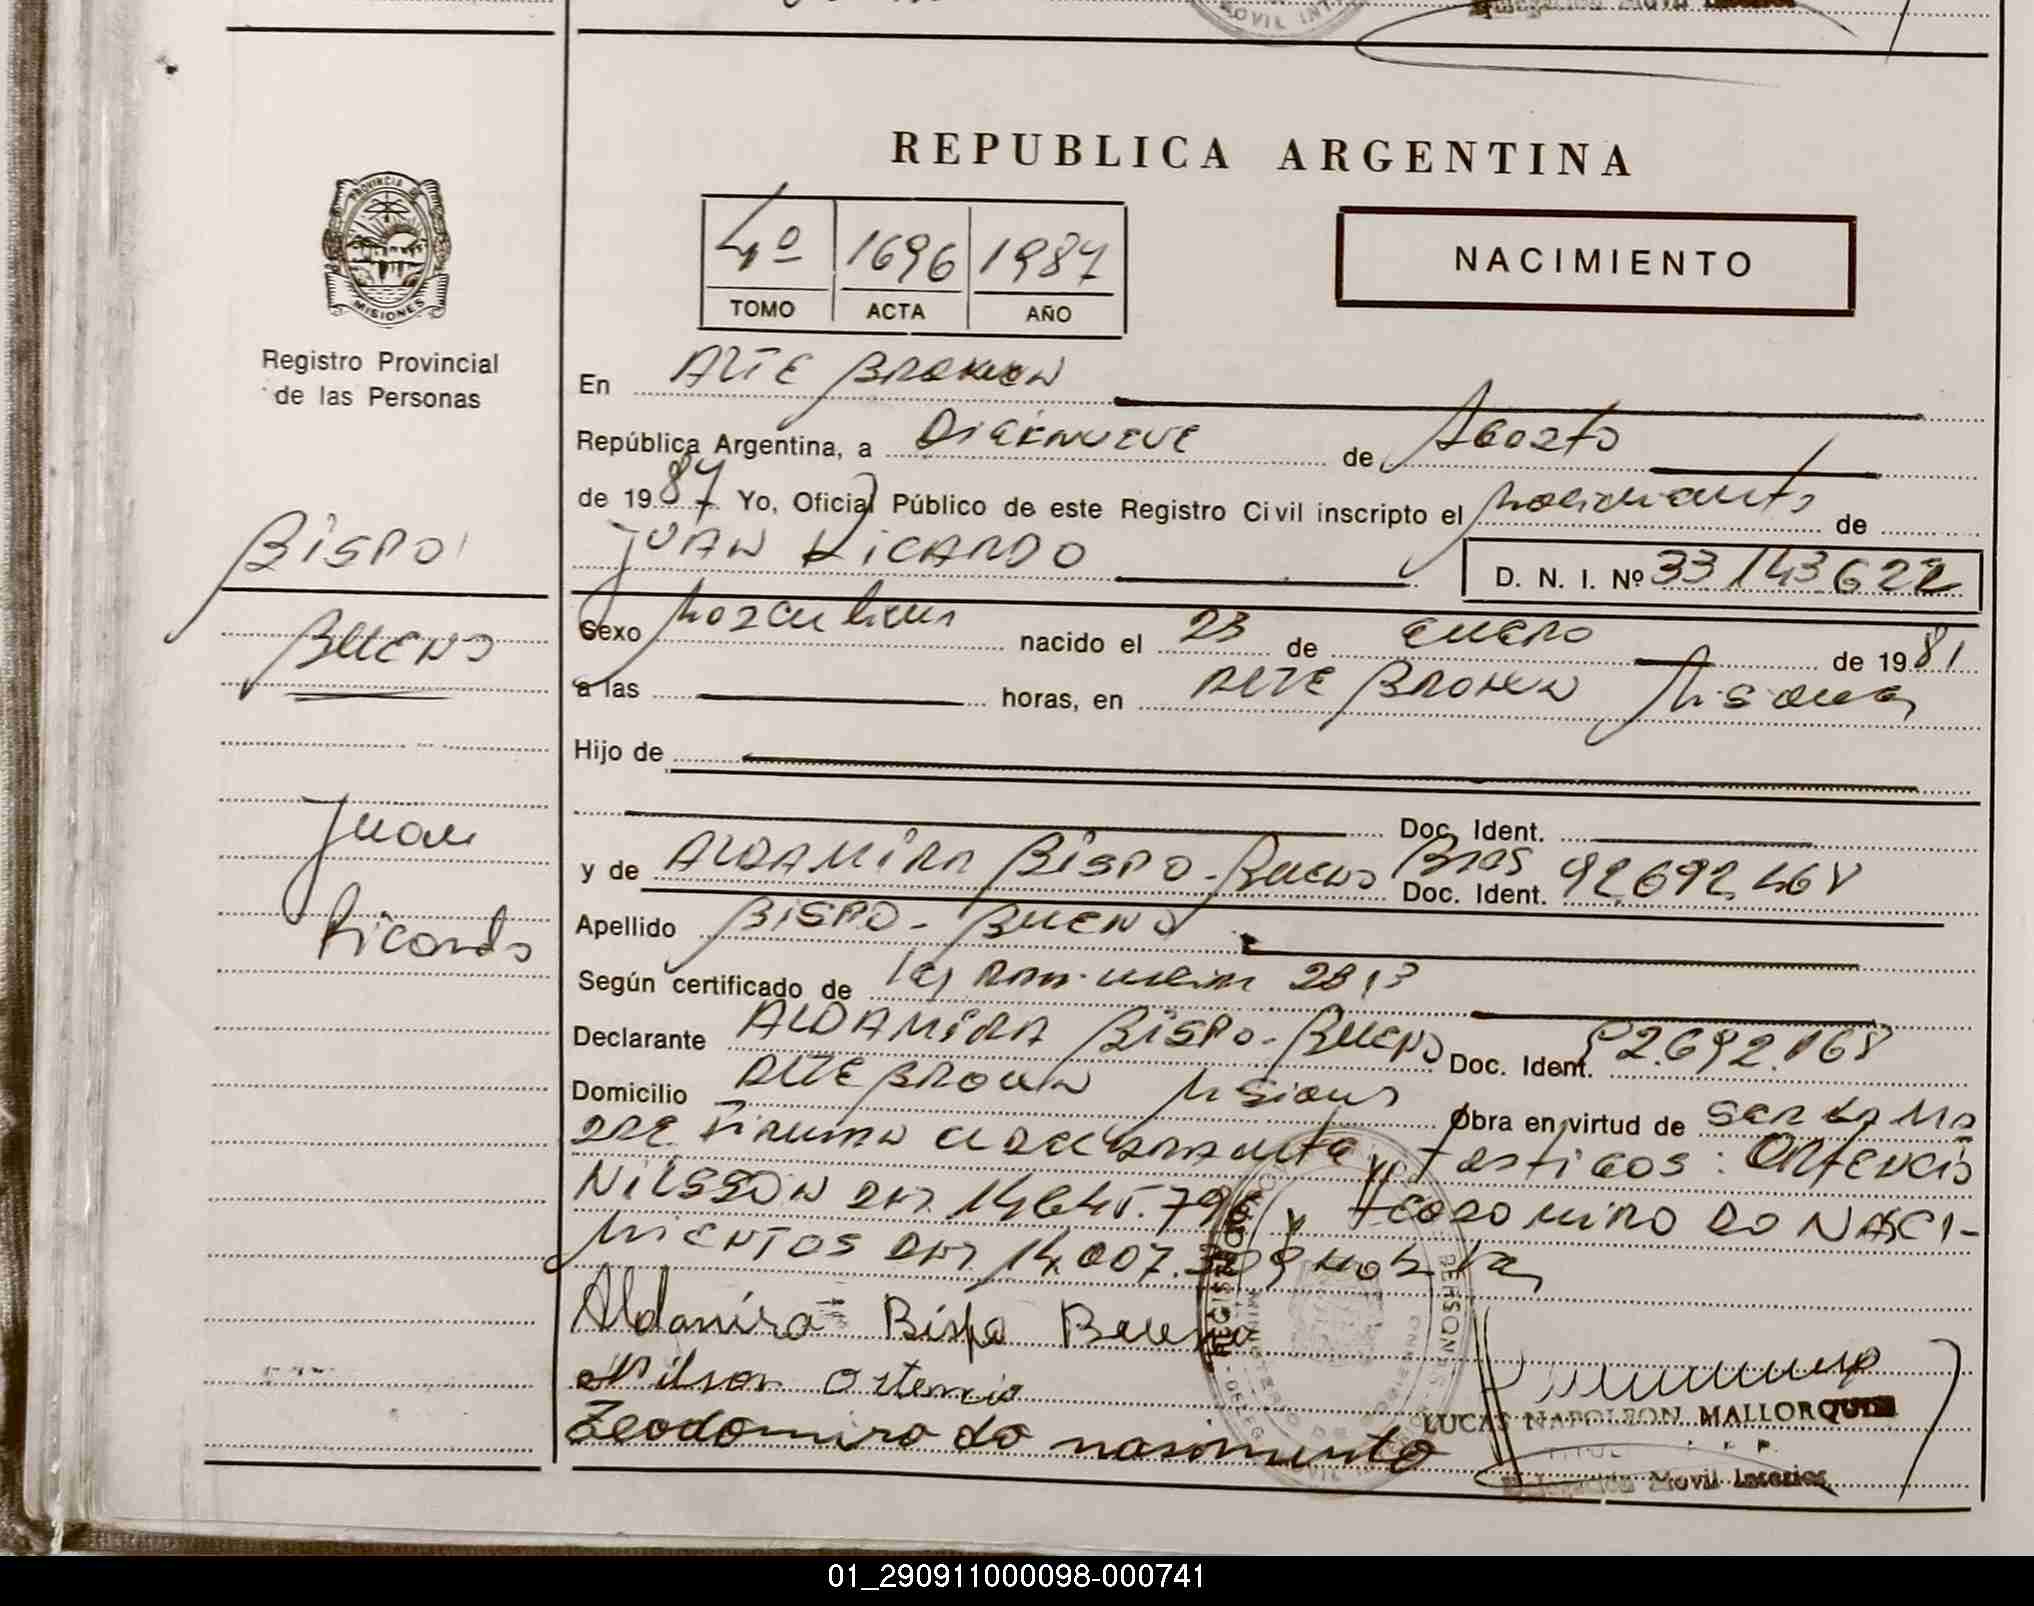 MOVIL INT
REPUBLICA ARGENTINA
PROVINCIA DE
MISIONES
4º 1696 1987
TOMO ACTA AÑO
NACIMIENTO
Registro Provincial
de las Personas
En ALTE BROWN
República Argentina, a DIECINUEVE de Agosto
de 1987 Yo, Oficial Público de este Registro Civil inscripto el nacimiento de
JUAN RICARDO
D. N. I. Nº 33143622
BISPO
BUENO
Juan
Ricardo
Sexo Masculino nacido el 23 de ENERO de 1981
a las horas, en ALTE BROWN Misiones
Hijo de
y Doc. Ident.
y de ALDAMIRA BISPO - BUENO Bras Doc. Ident. 92.692.168
Apellido BISPO - BUENO
Según certificado de Ley 2813
Declarante ALDAMIRA BISPO - BUENO Doc. Ident. 92.692.168
Domicilio ALTE BROWN Misiones Obra en virtud de ser la ma
dre Firman el declarante y testigos: ORTENCIO
NILSSON DNI. y TEODOMIRO DO NASCI-
MIENTOS DNI. 14.007.
Aldamira Bispo Bueno
Nilson Ortencio
Teodomiro do nascimento
LUCAS NAPOLEON MALLORQUIN
Delegación Movil Interior
01_290911000098-000741